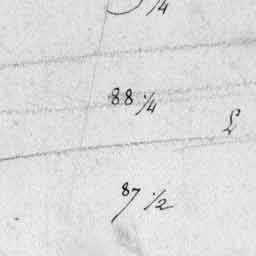 1/4
88 1/4
87 1/2